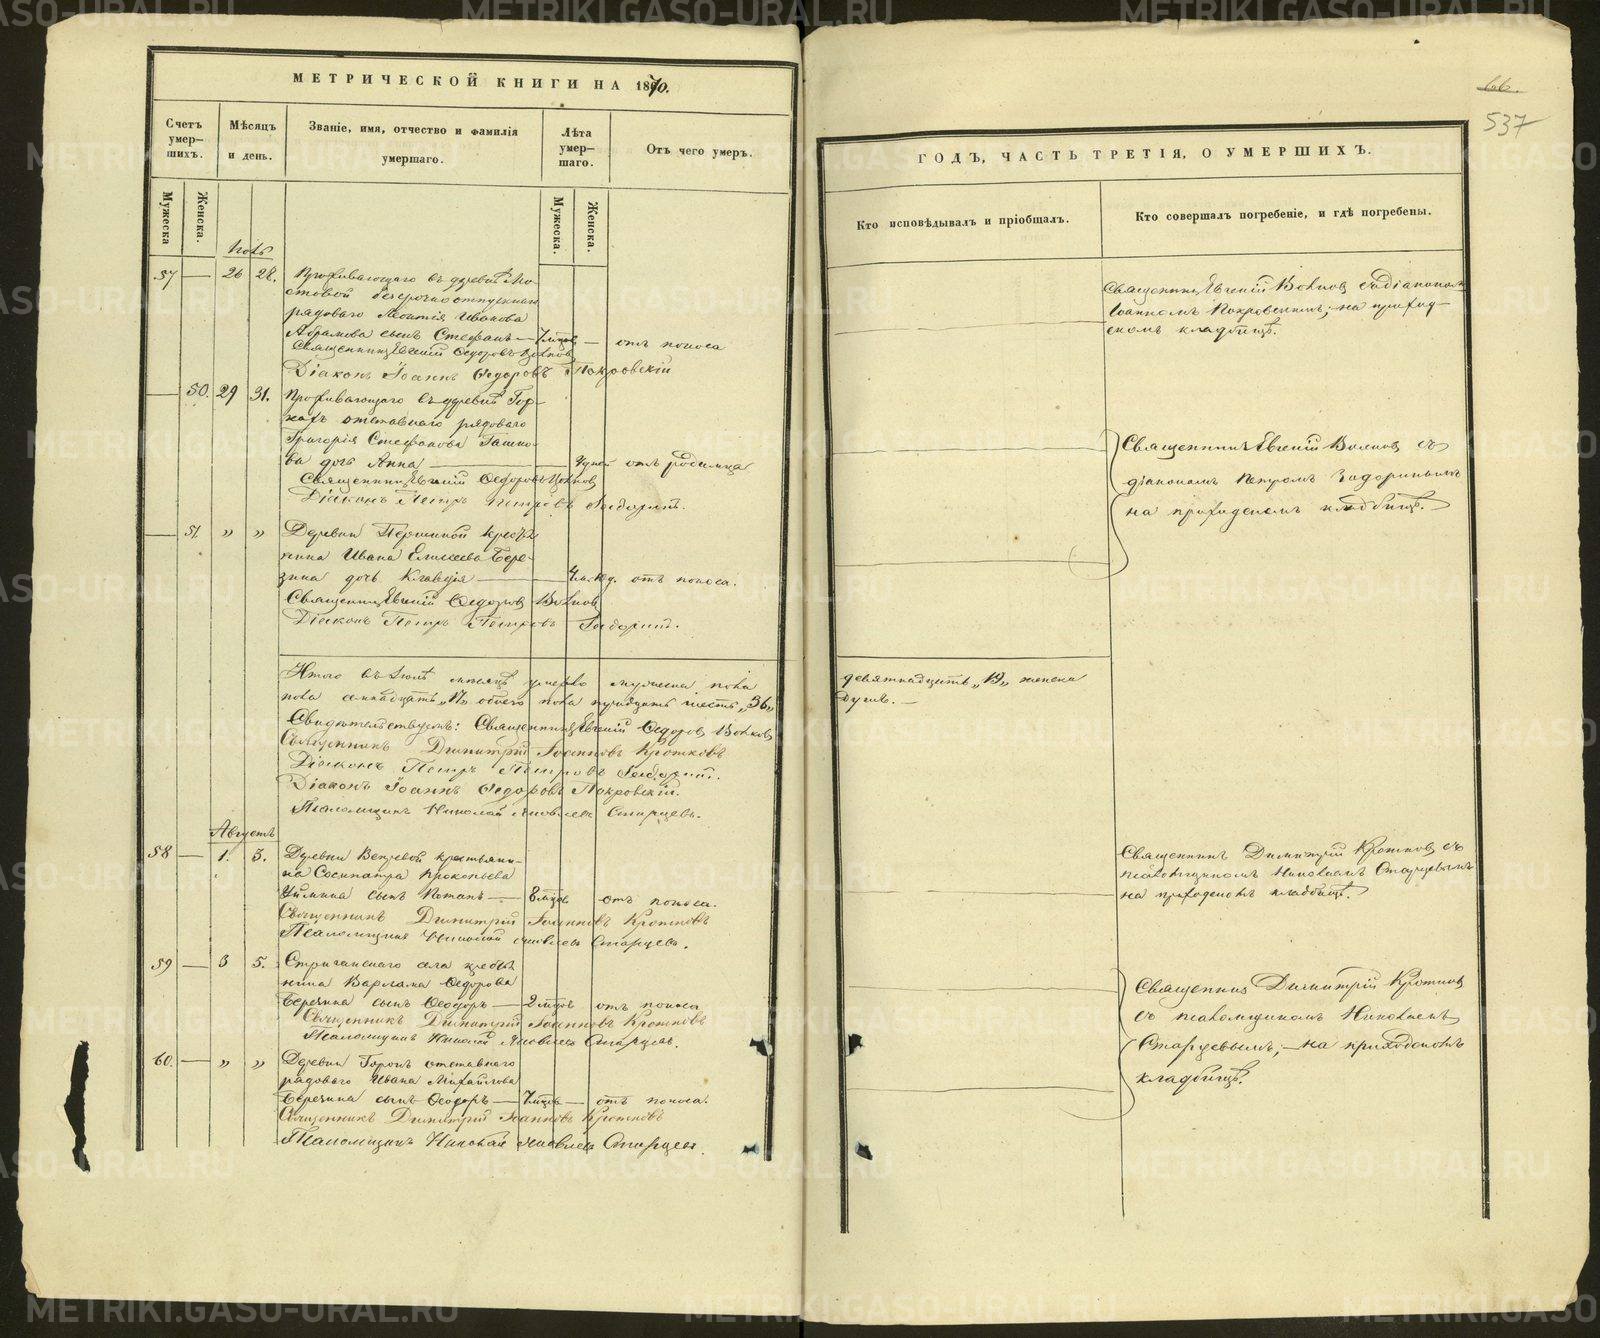 МЕТРИЧЕСКОЙ КНИГИ НА 1870.
Счетъ умер-шихъ.
Мѣсяцъ и день.
Званіе, имя, отчество и фамилія умершаго.
Лѣта умер-шаго.
Отъ чего умеръ.
Мужеска
Женска.
Мужеска.
Женска.
57 — 26 28. Проживающаго въ деревнѣ Мо-
стовой безсрочноотпускнаго
рядоваго Иванова
Абрамова сынъ Стефанъ — 7 мцовъ — отъ поноса
Священникъ Евгеній Ѳедоровъ Волковъ
Діаконъ Іоаннъ Ѳедоровъ Покровскій
— 50. 29 31. Проживающаго въ деревнѣ Гор-
кахъ отставнаго рядоваго
Григорія Стефанова Пашко-
ва дочь Анна — дней отъ родимца
Священникъ Евгеній Ѳедоровъ Волковъ
Діаконъ Петръ Петровъ
— 51. „ „ Деревни Першиной кресть-
янина Ивана Елисеева Бере-
зина дочь Клавдія — отъ поноса.
Священникъ Евгеній Ѳедоровъ Волковъ
Діаконъ Петръ Петровъ
Итого въ Іюлѣ мѣсяцѣ умерло мужеска пола
пола семнадцать „17„ обоего пола тридцать шесть „36„
Свидѣтельствуемъ: Священникъ Евгеній Ѳедоровъ Волковъ
Священникъ Димитрій Іоанновъ Кротковъ
Діаконъ Петръ Петровъ
Діаконъ Іоаннъ Ѳедоровъ Покровскій.
Псаломщикъ Николай Яковлевъ Старцевъ.
Августъ
58 — 1. 3. Деревни крестьяни-
на Сосипатра Прокопьева
сынъ Потапъ — 8 мцовъ отъ поноса.
Священникъ Димитрій Іоанновъ Кротковъ
Псаломщикъ Николай Яковлевъ Старцевъ.
59 — 3 5. Стриганскаго села кресть-
нина Варлама Ѳедорова
Березина сынъ Ѳеодоръ — 2 мцовъ отъ поноса
Священникъ Димитрій Іоанновъ Кротковъ
Псаломщикъ Николай Яковлевъ Старцевъ.
60. — „ „ Деревни Горокъ отставнаго
рядоваго Ивана Михайлова
Березина сынъ Ѳеодоръ — 7 мцовъ — отъ поноса.
Священникъ Димитрій Іоанновъ Кротковъ
Псаломщикъ Николай Яковлевъ Старцевъ.
66.
537
ГОДЪ, ЧАСТЬ ТРЕТІЯ, О УМЕРШИХЪ.
Кто исповѣдывалъ и пріобщалъ.
Кто совершалъ погребеніе, и гдѣ погребены.
Священникъ Евгеній Волковъ съ діакономъ
Іоанномъ Покровскимъ; на приход-
скомъ кладбищѣ.
Священникъ Евгеній Волковъ съ
діакономъ Петромъ
на приходскомъ кладбищѣ.
девятнадцать „19„ женска
душъ. —
Священникъ Димитрій Кротковъ съ
псаломщикомъ Николаемъ Старцевымъ
на приходскомъ кладбищѣ.
Священникъ Димитрій Кротковъ
съ псаломщикомъ Николаемъ
Старцевымъ; — на приходскомъ
кладбищѣ.
METRIKI.GASO-URAL.RU